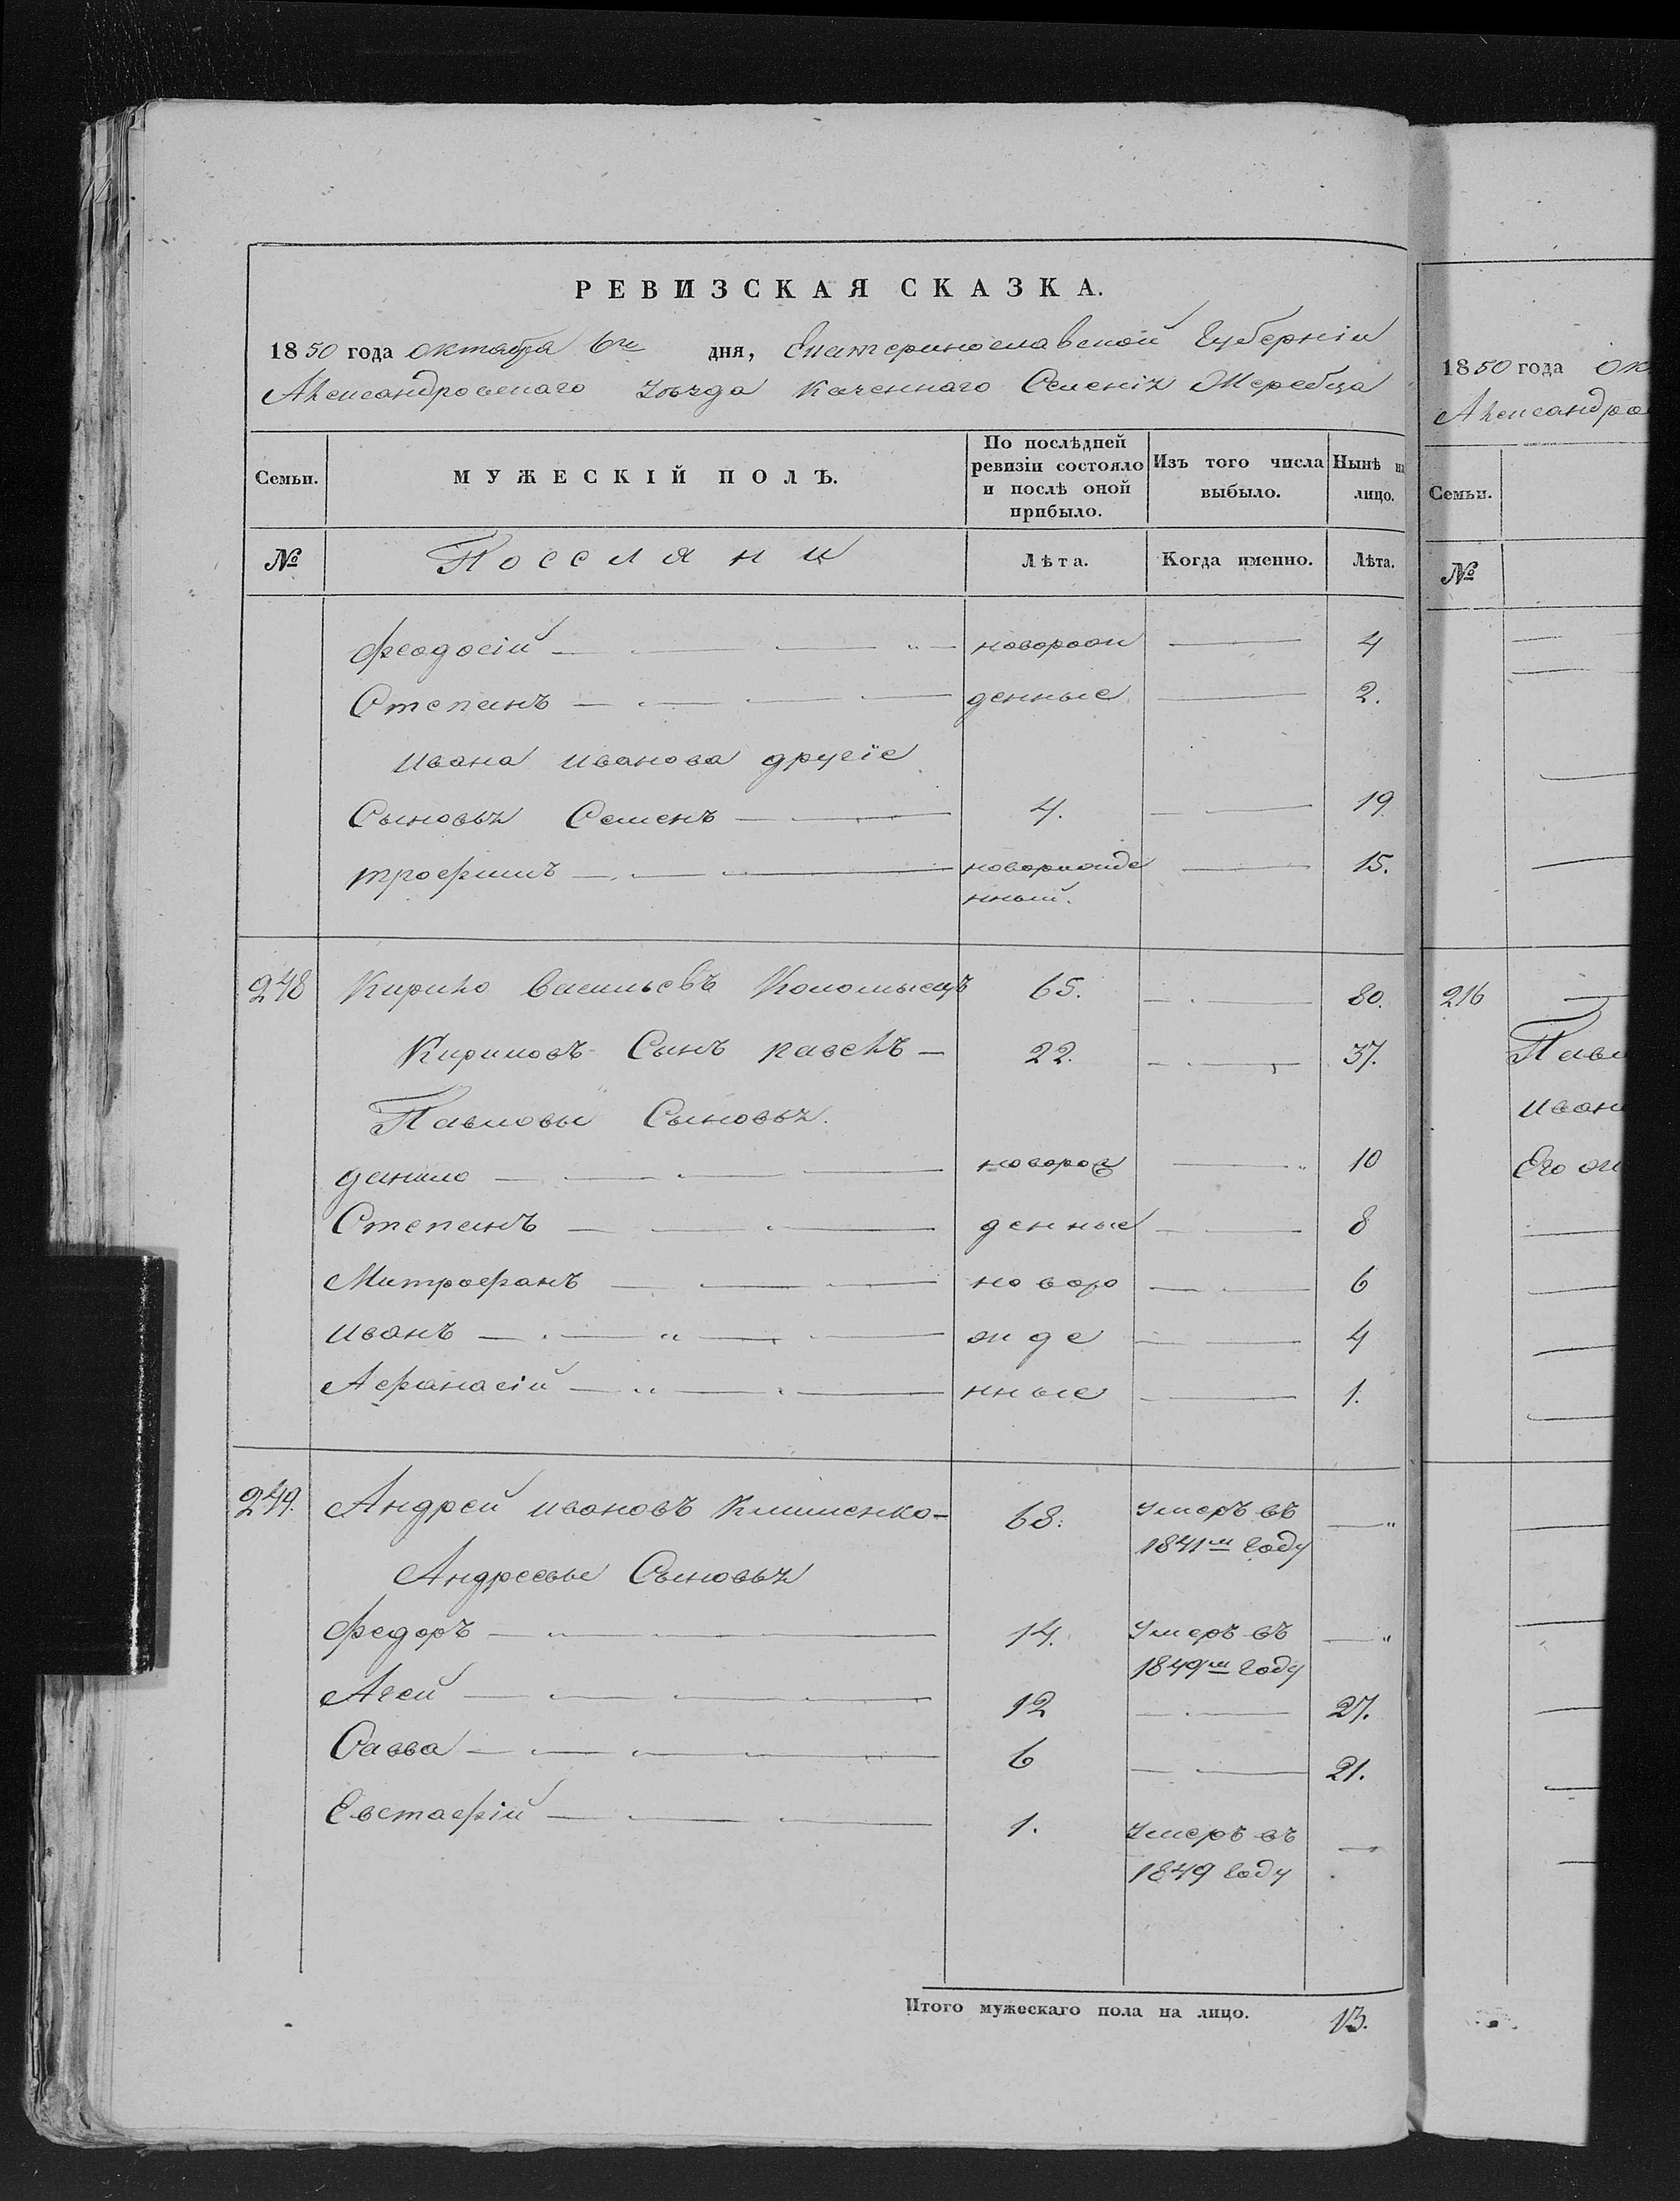 РЕВИЗСКАЯ СКАЗКА.
1850 года октября 6го дня, Екатеринославской Губерніи
Александровскаго Уѣзда Казеннаго Селенія Жеребца
Семьи. МУЖЕСКІЙ ПОЛЪ. По послѣдней ревизіи состояло и послѣ оной прибыло. Изъ того числа выбыло. Нынѣ на лицо.
№ Поселяни Лѣта. Когда именно. Лѣта.
Феодосій — новорож — 4
Степанъ — денные — 2.
Ивана Иванова другіе
Сыновья Семенъ — 4. — 19
Трофимъ — новорожде — 15.
нный.
248 Кирило Васильевъ Коломыецъ 65. — 80.
Кириловъ Сынъ Павелъ — 22. — 37.
Павловы Сыновья.
Данило — новорож — 10
Степанъ — денные — 8
Митрофанъ — новоро — 6
Иванъ — жде — 4
Афанасій — нные — 1.
249. Андрей Ивановъ Клименко — 68. Умеръ въ —
1841м Году
Андреевы Сыновья
Федоръ — 14. Умеръ въ —
1849м Году
Агей — 12 — 27.
Савва — 6 — 21.
Евстафій — 1. Умеръ въ —
1849 Году
Итого мужескаго пола на лицо. 13.
1850 года
Семьи.
№
216